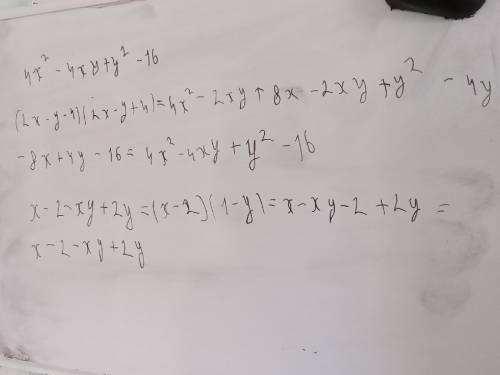 4x² - 4xy + y² - 16
(2x - y - 4)(2x - y + 4) = 4x² - 2xy + 8x - 2xy + y² - 4y
- 8x + 4y - 16 = 4x² - 4xy + y² - 16
x - 2 - xy + 2y = (x - 2)(1 - y) = x - xy - 2 + 2y =
x - 2 - xy + 2y